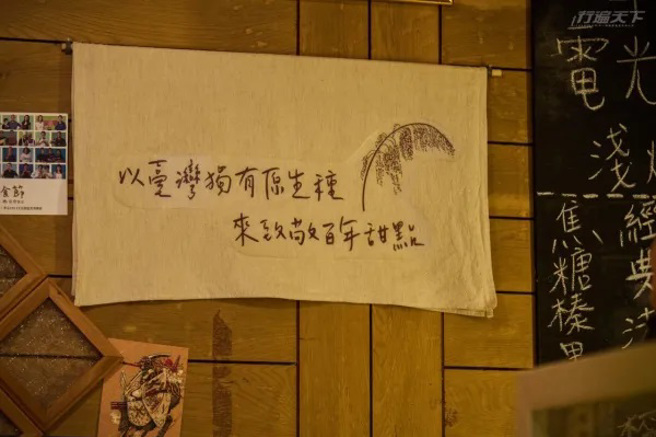 行遍天下
以臺灣獨有原生種
來致敬百年甜點
食節
電光
淺
經典
焦糖榛果